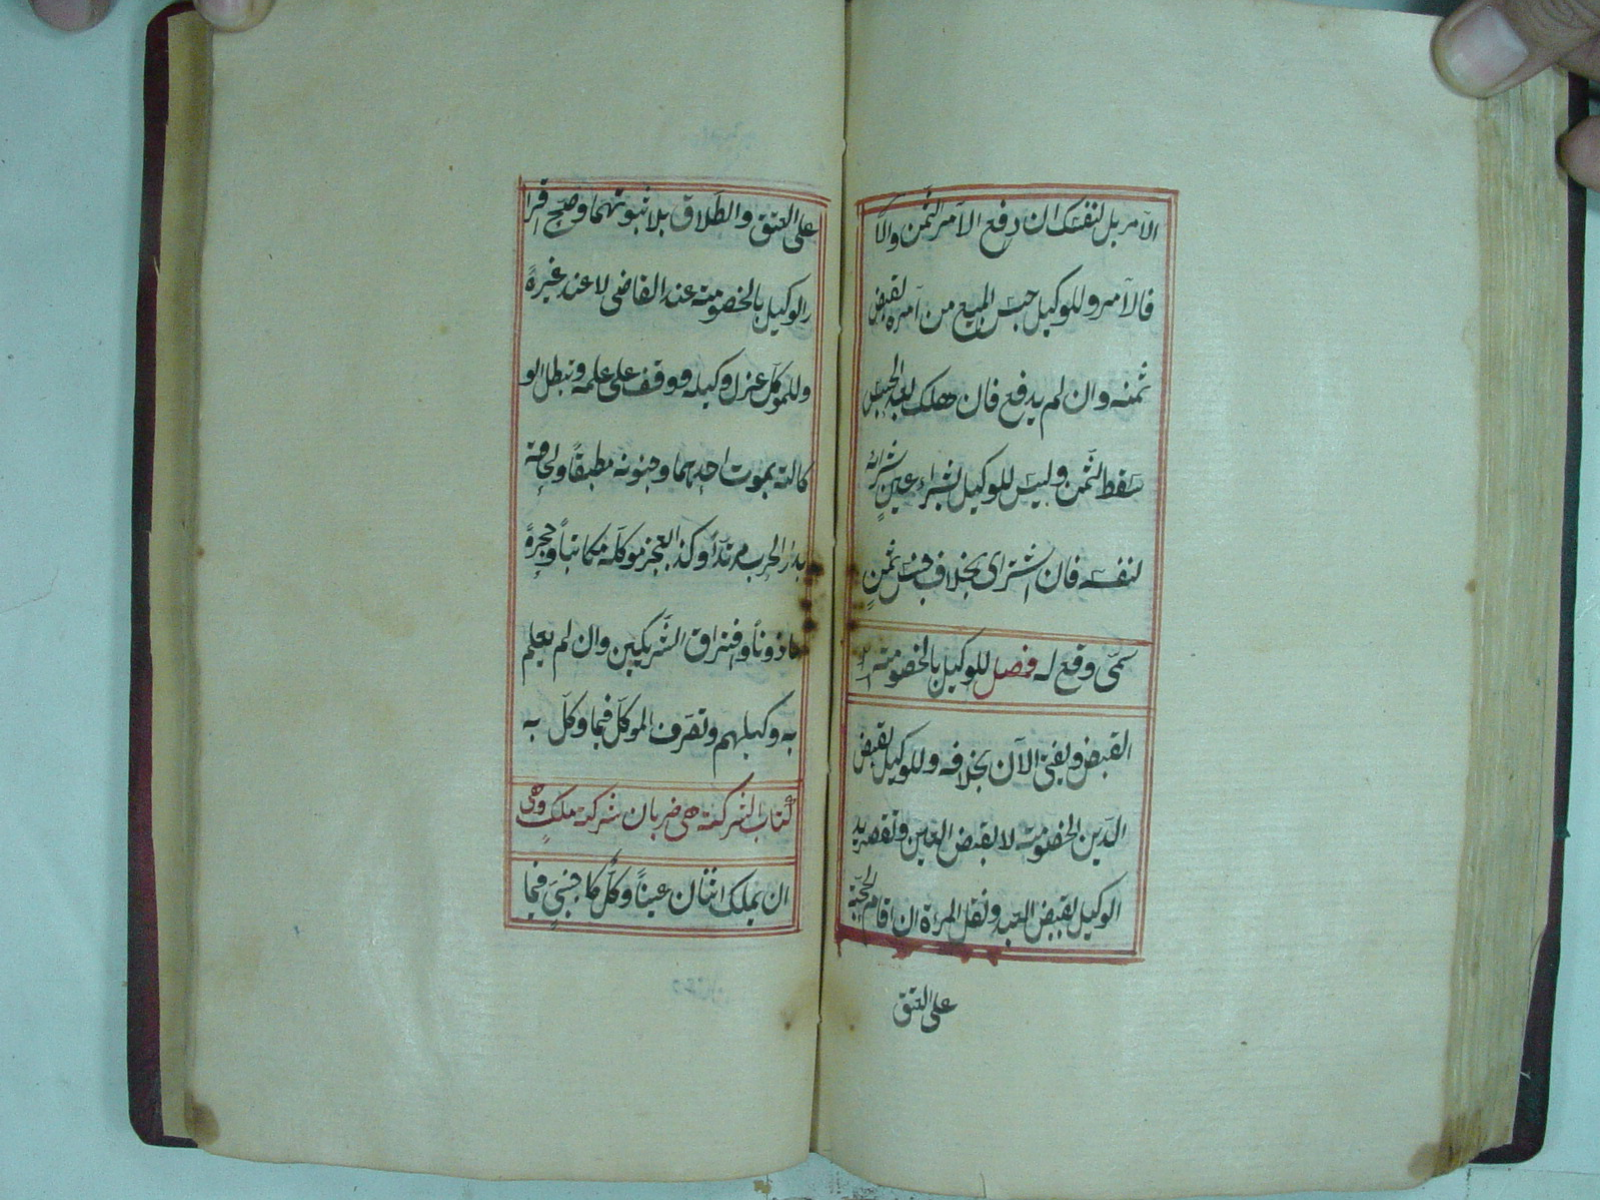 الآمر بل لنفسك ان دفع الآمر الثمن والّا
فالآمر وللوكيل حبس المبيع من آمره لقبض
ثمنه وان لم يدفع فان هلك بعد الحبس
سقط الثمن وليس للوكيل بشراء عينٍ شراؤه
لنفسه فان اشترى بخلاف جنس ثمنٍ
سمّى وقع له فصل للوكيل بالخصومة
القبض ويفتى الآن بخلافه وللوكيل بقبض
الدّين الخصومة لا بقبض العين وتقصر يد
الوكيل بقبض العبد ونقل المرءة ان اقام الحجّة
على العتق
على العتق والطّلاق بلا ثبوتهما وصحّ اقرا
رالوكيل بالخصومة عند القاضى لا عند غيره
وللموكّل عزل وكيله ووقف على علمه وتبطل الو
كالة بموت احدهما وجنونه مطبقاً ولحاقه
بدار الحرب مرتدّاً وكذا بعجز موكّله مكاتباً وحجره
ماذوناً وافتراق الشّريكين وان لم يعلم
به وكيلهم وتصرّف الموكّل فيما وكّل به
كتاب الشركة هى ضربان شركة ملكٍ وهى
ان يملك اثنان عيناً وكلٌّ كاجنبىٍّ فيما